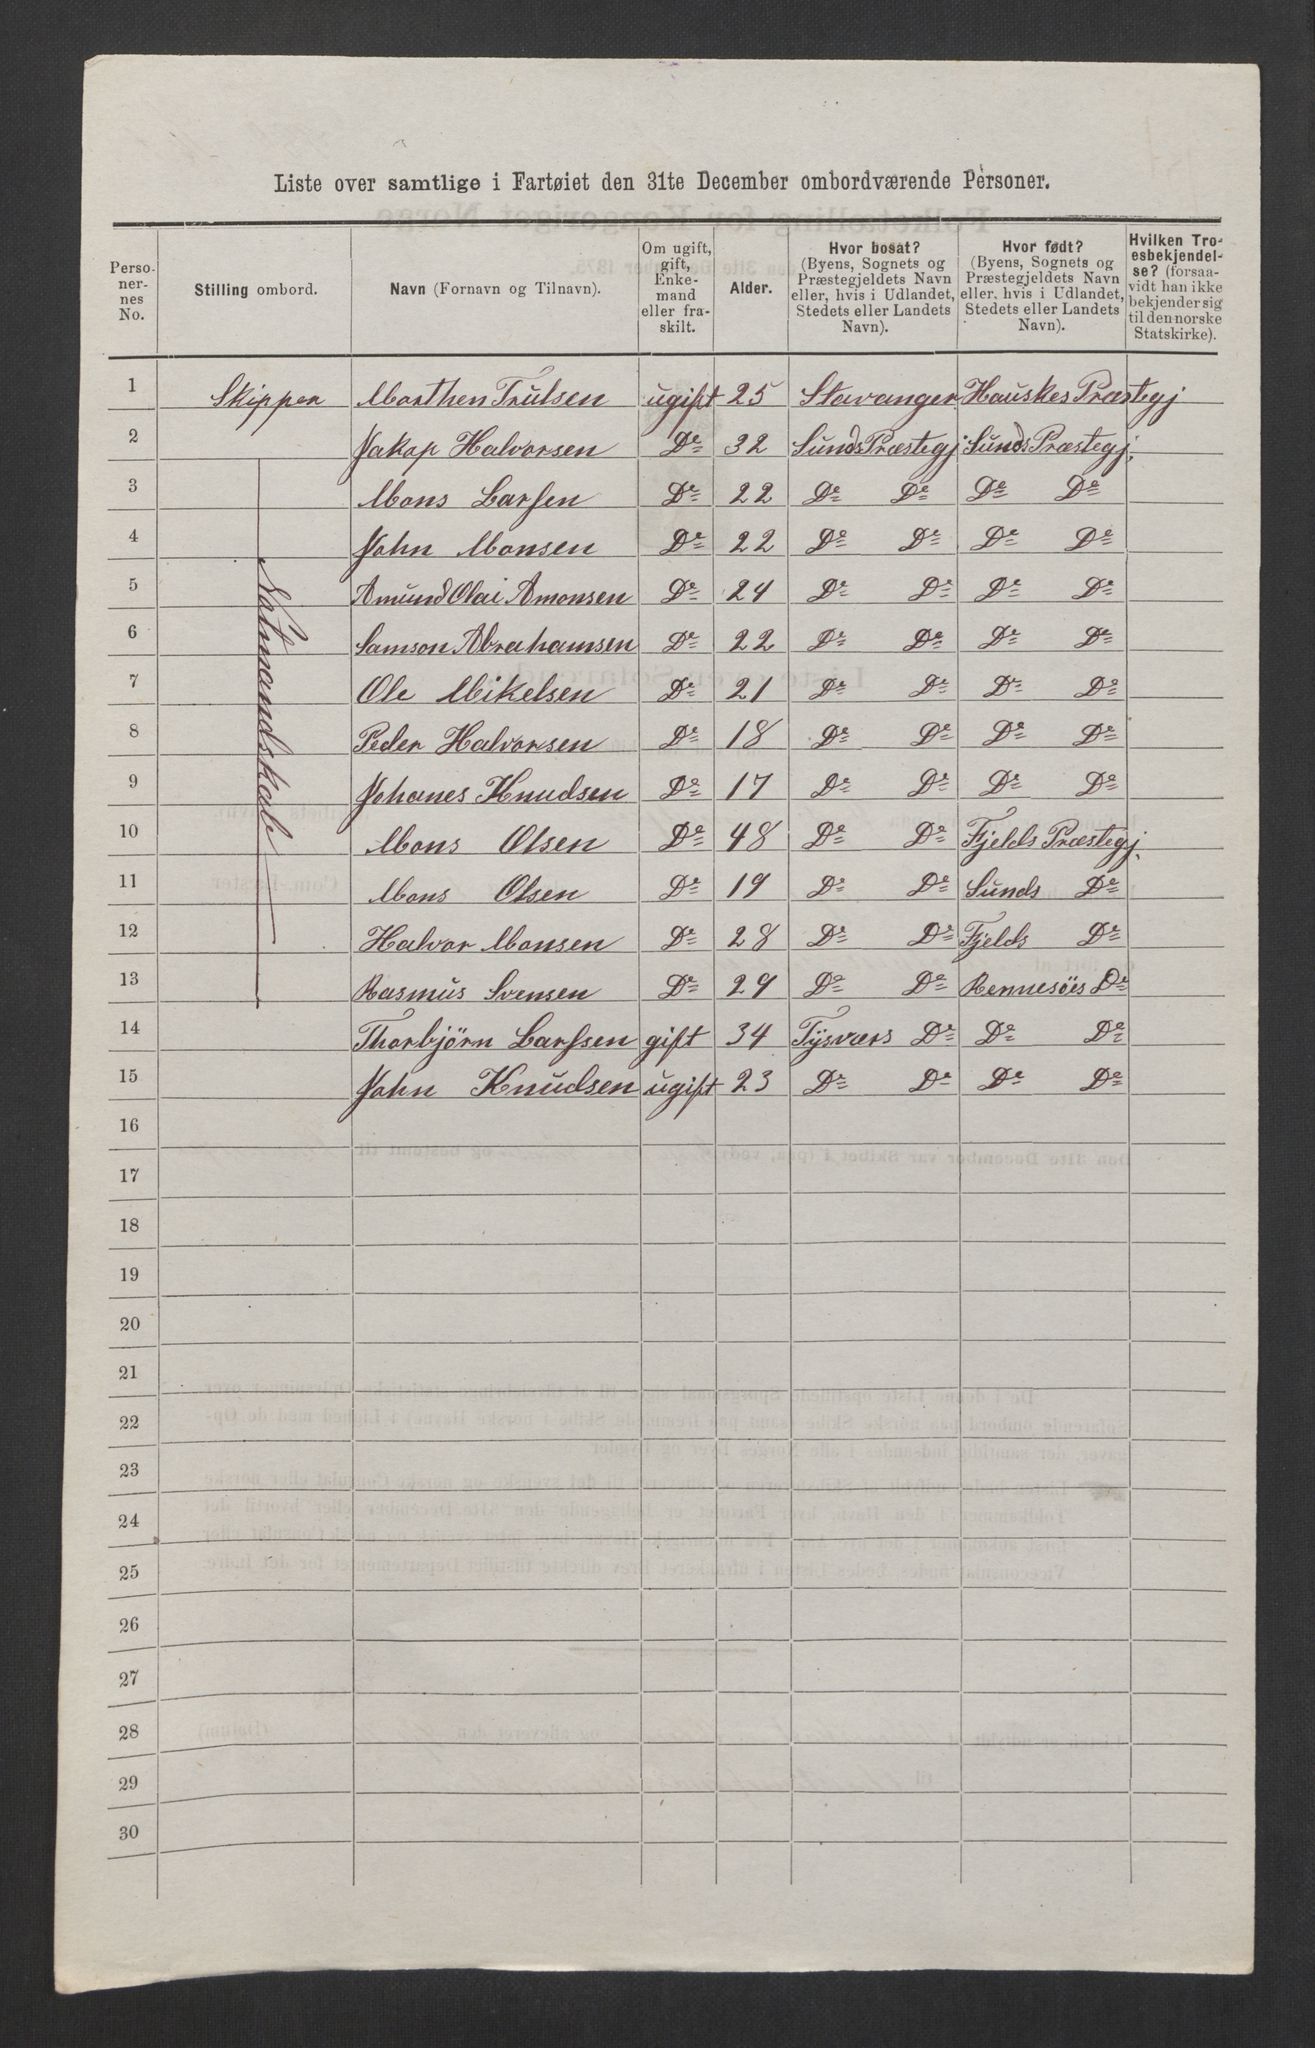 Liste over samtlige i Fartøiet den 31te December ombordværende Personer.
Perso-
ner-
nes
No.
Stilling ombord.
Navn (Fornavn og Tilnavn).
Om ugift,
gift,
Enke-
mand
eller fra-
skilt.
Alder.
Hvor bosat?
(Byens, Sognets og
Præstegjeldets Navn
eller, hvis i Udlandet,
Stedets eller Landets
Navn).
Hvor født?
(Byens, Sognets og
Præstegjeldets Navn
eller, hvis i Udlandet,
Stedets eller Landets
Navn).
Hvilken Tro-
esbekjendel-
se? (forsaa-
vidt han ikke
bekjender sig
til den norske
Statskirke).
1 Skipper Morthen Trulsen ugift 25 Stavanger Hauskes Præstegj
2 Jakop Halvorsen Do 32 Sunds Præstegj Sunds Præstegj.
3 Mons Larsen Do 22 Do Do Do Do
4 John Monsen Do 22 Do Do Do Do
5 Amund Olai Amonsen Do 24 Do Do Do Do
6 Samson Abrahamsen Do 22 Do Do Do Do
7 Ole Mikelsen Do 21 Do Do Do Do
8 Peder Halvorsen Do 18 Do Do Do Do
9 Johanes Knudsen Do 17 Do Do Do Do
10 Mons Olsen Do 48 Do Do Fjelds Præstegj.
11 Mons Olsen Do 19 Do Do Sunds Do
12 Halvor Monsen Do 28 Do Do Fjelds Do
13 Rasmus Svensen Do 29 Do Do Rennesöes Do
14 Thorbjörn Larssen gift 34 Tysværs Do Do Do
15 John Knudsen ugift 23 Do Do Do Do
Notmandskab
16
17
18
19
20
21
22
23
24
25
26
27
28
29
30